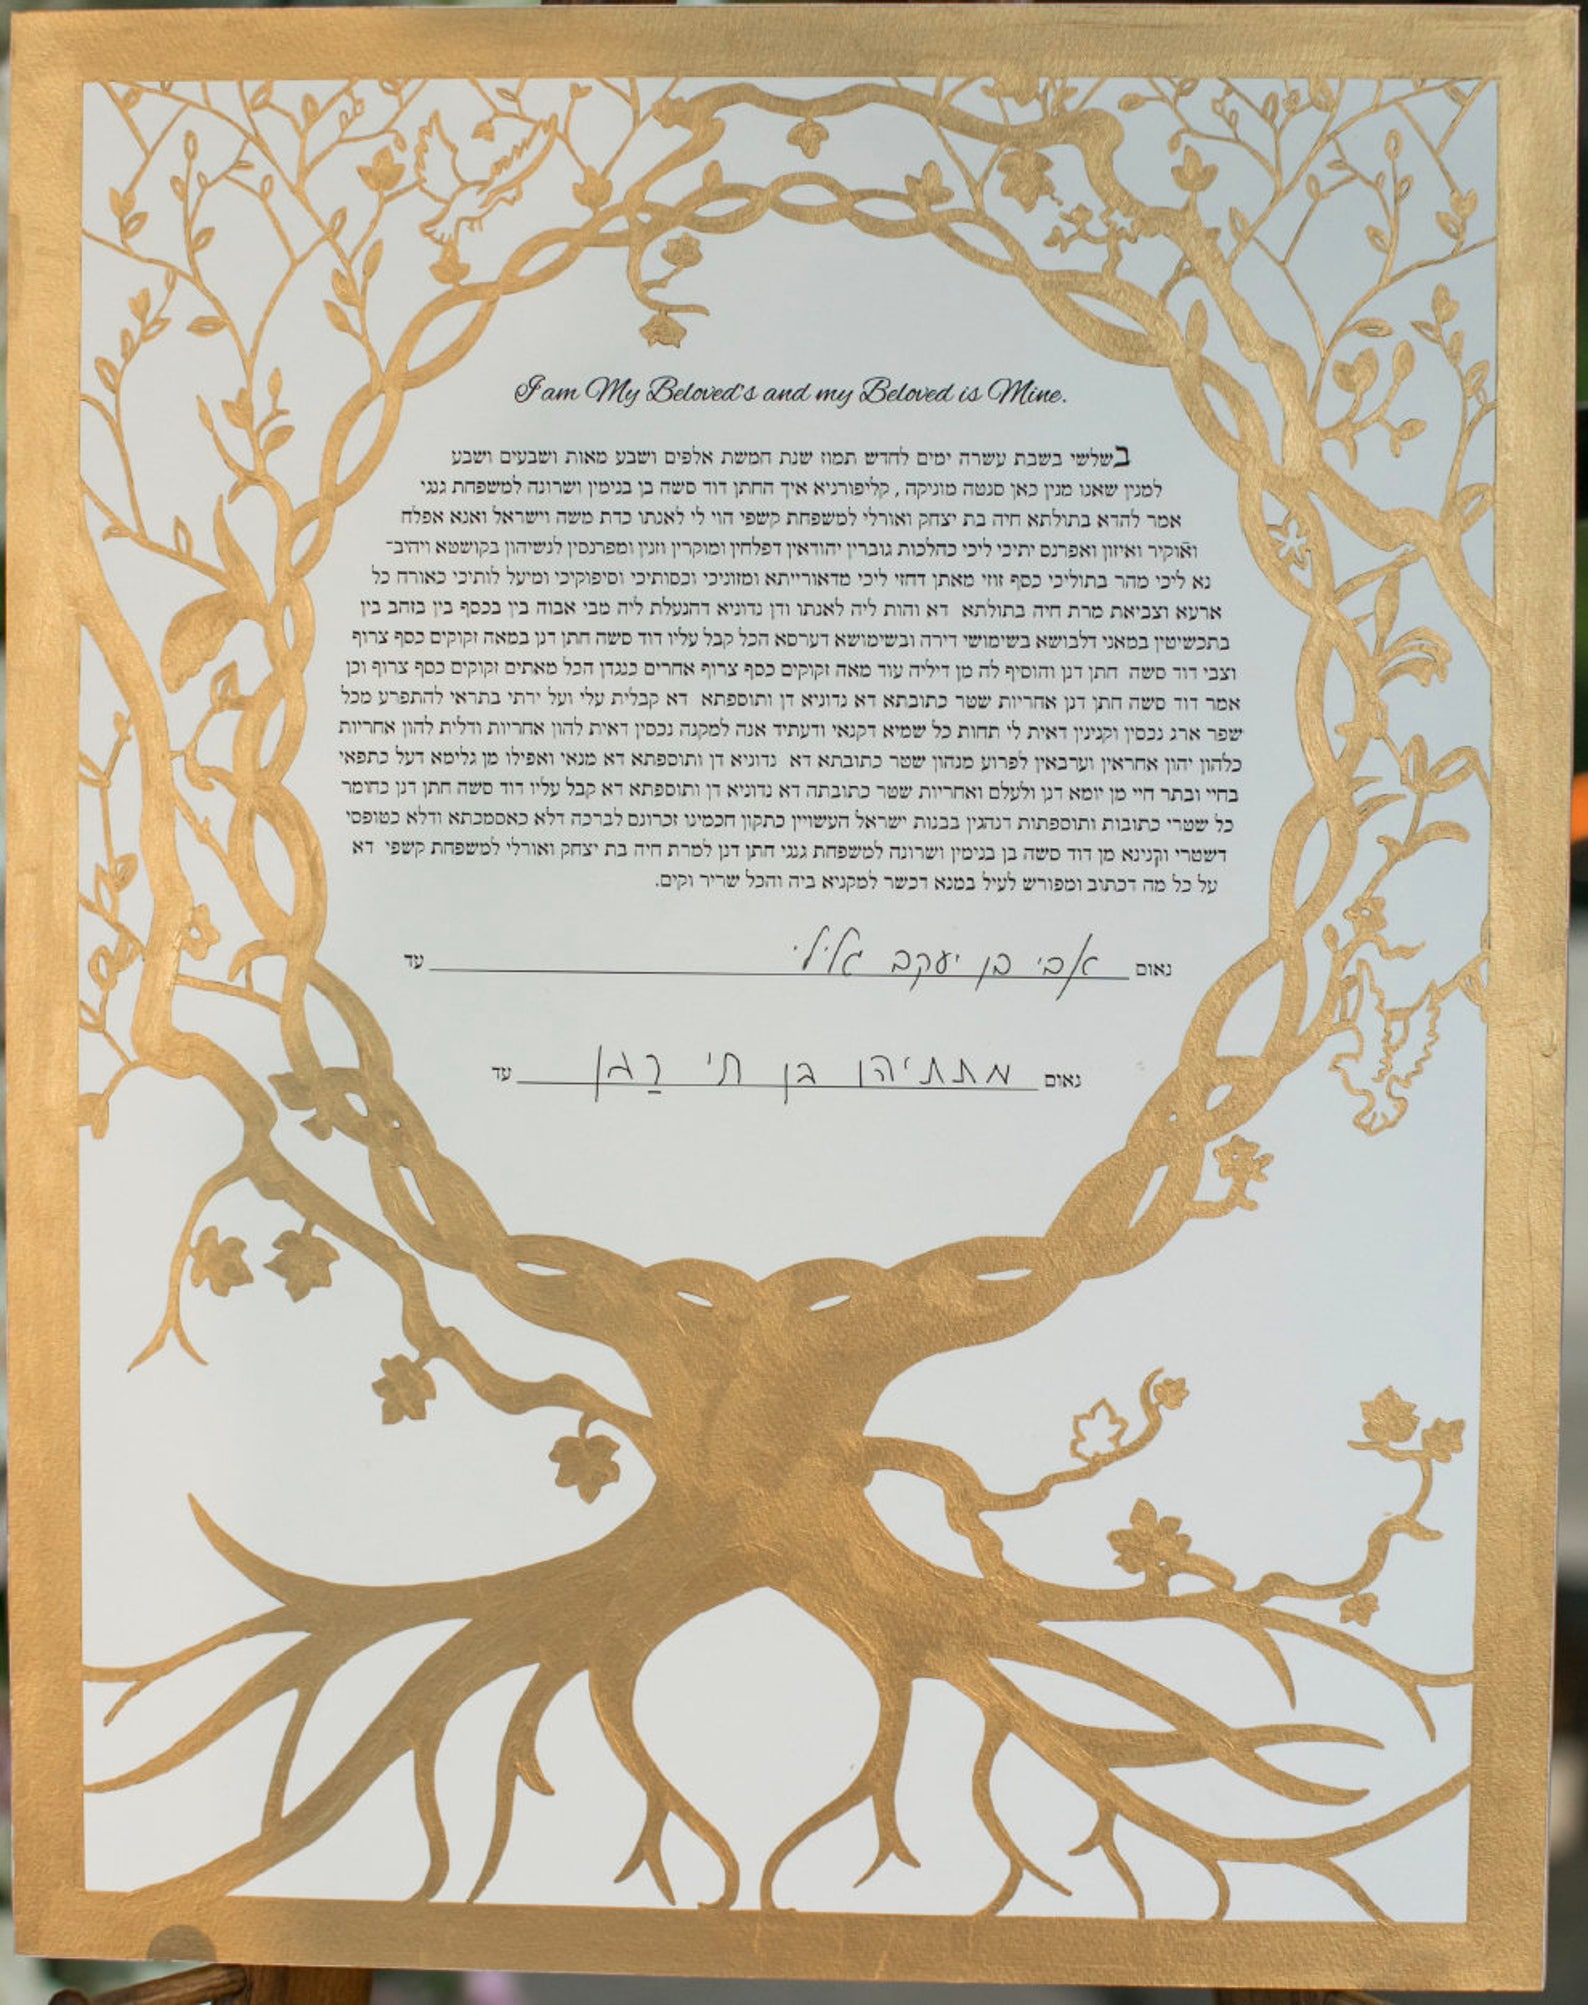 I am My Beloved's and my Beloved is Mine.
בשלשי בשבת עשרה ימים לחדש תמוז שנת חמשת אלפים ושבע מאות ושבעים ושבע
למנין שאנו מנין כאן סנטה מוניקה , קליפורניא איך החתן דוד סשה בן בנימין ושרונה למשפחת גנגי
אמר להדא בתולתא חיה בת יצחק ואורלי למשפחת קשפי הוי לי לאנתו כדת משה וישראל ואנא אפלח
ואוקיר ואיזון ואפרנס יתיכי ליכי כהלכות גוברין יהודאין דפלחין ומוקרין וזנין ומפרנסין לנשיהון בקושטא ויהיב־
נא ליכי מהר בתוליכי כסף זוזי מאתן דחזי ליכי מדאורייתא ומזוניכי וכסותיכי וסיפוקיכי ומיעל לותיכי כאורח כל
ארעא וצביאת מרת חיה בתולתא דא והות ליה לאנתו ודן נדוניא דהנעלת ליה מבי אבוה בין בכסף בין בזהב בין
בתכשיטין במאני דלבושא בשימושי דירה ובשימושא דערסא הכל קבל עליו דוד סשה חתן דנן במאה זקוקים כסף צרוף
וצבי דוד סשה חתן דנן והוסיף לה מן דיליה עוד מאה זקוקים כסף צרוף אחרים כנגדן הכל מאתים זקוקים כסף צרוף וכן
אמר דוד סשה חתן דנן אחריות שטר כתובתא דא נדוניא דן ותוספתא דא קבלית עלי ועל ירתי בתראי להתפרע מכל
שפר ארג נכסין וקנינין דאית לי תחות כל שמיא דקנאי ודעתיד אנה למקנה נכסין דאית להון אחריות ודלית להון אחריות
כלהון יהון אחראין וערבאין לפרוע מנהון שטר כתובתא דא נדוניא דן ותוספתא דא מנאי ואפילו מן גלימא דעל כתפאי
בחיי ובתר חיי מן יומא דנן ולעלם ואחריות שטר כתובתה דא נדוניא דן ותוספתא דא קבל עליו דוד סשה חתן דנן כחומר
כל שטרי כתובות ותוספתות דנהגין בבנות ישראל העשויין כתקון חכמינו זכרונם לברכה דלא כאסמכתא ודלא כטופסי
דשטרי וקנינא מן דוד סשה בן בנימין ושרונה למשפחת גנגי חתן דנן למרת חיה בת יצחק ואורלי למשפחת קשפי דא
על כל מה דכתוב ומפורש לעיל במנא דכשר למקניא ביה והכל שריר וקים.
נאום אבי בן יעקב גלילי עד
נאום מתתיהו בן חי עד